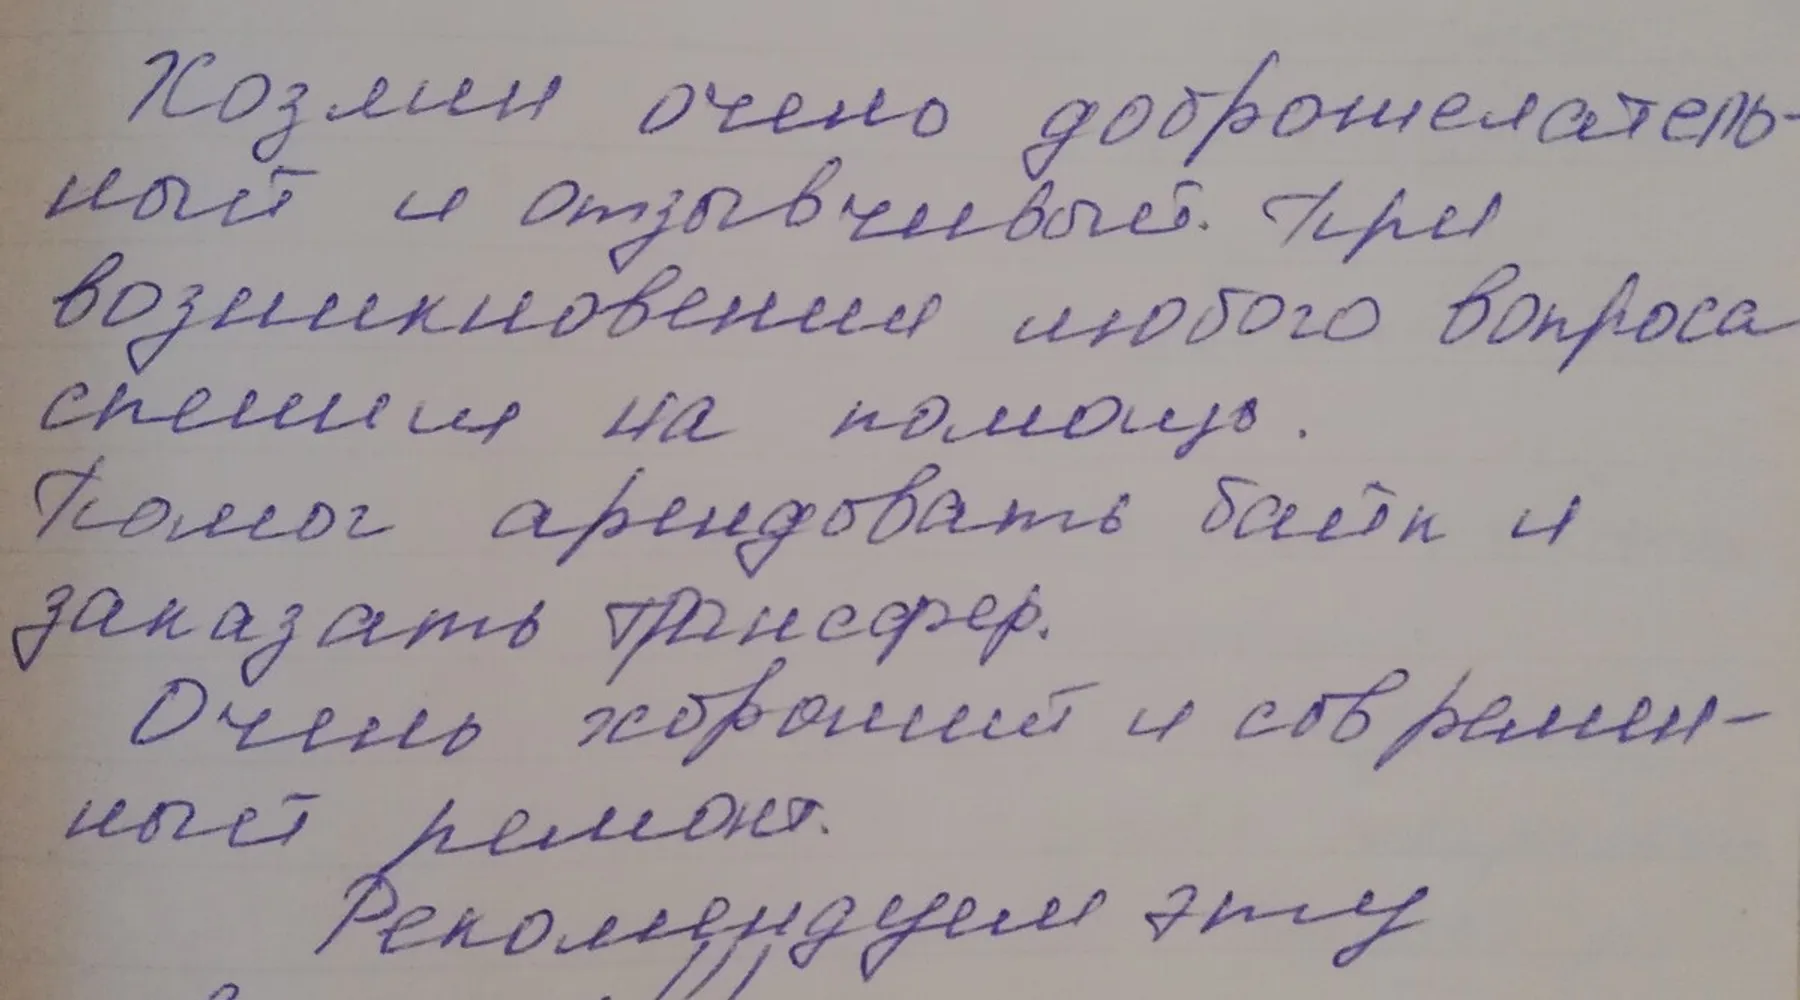 Хозяин очень доброжелатель-
ный и отзывчивый. При
возникновении любого вопроса
спешил на помощь.
Помог арендовать байк и
заказать трансфер.
Очень хороший и современ-
ный ремонт.
Рекомендуем эту
!!!